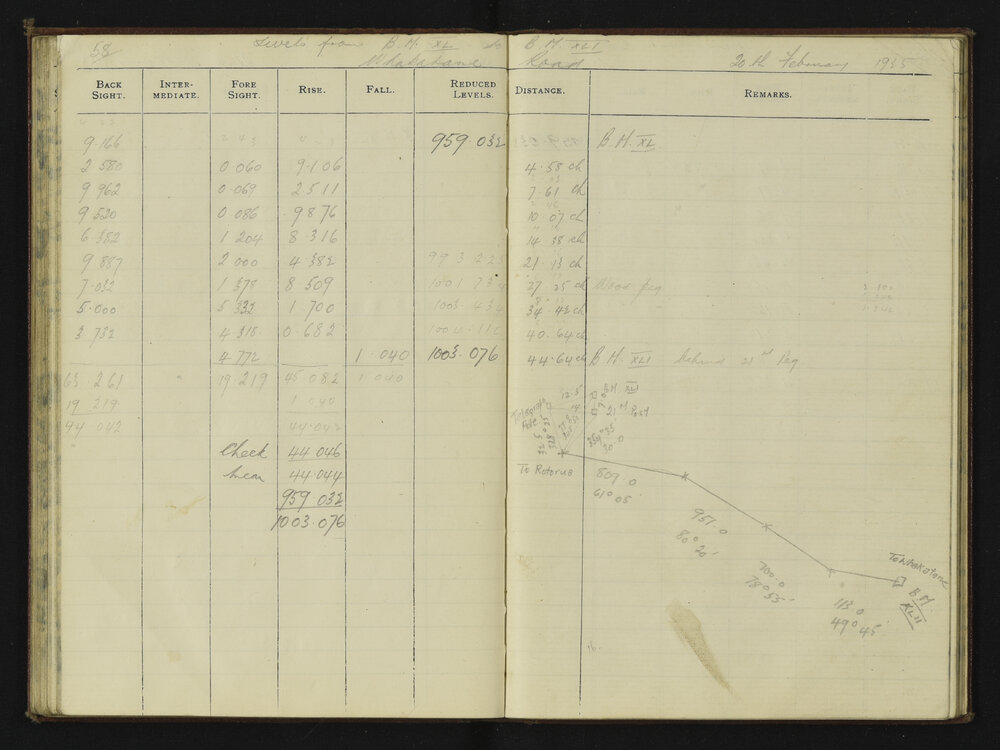 58 Levels from B.M. XL to B.M. XLI
Whakatane Road 20th February 1935
BACK SIGHT. INTER-MEDIATE. FORE SIGHT. RISE. FALL. REDUCED LEVELS. DISTANCE. REMARKS.
9.166 959.032 B.M. XL
2 580 0.060 9.106 4.58 ch
9 962 0.069 2 511 7.61 ch
9 520 0.086 9 876 10 07 ch
6 382 1 204 8.316 14 38 ch
9 887 2 000 4.382 993 223 21 13 ch
7.032 1 378 8 509 1001 734 27 25 ch Wood peg
5.000 5 332 1.700 1003 434 34.42 ch
3 732 4 318 0.682 1004.116 40.64 ch
4 772 1.040 1003.076 44.64 ch B.M. XLI Behind 21st Peg
63 261 19.219 45 082 1 040
19 219 1 040
44 042 44.042
Check 44 046
Mean 44.044
959 032
1003.076
12.5 B.M. XLI
Telegraph Pole 14 21 M Post
30 0
To Rotorua
807.0
61° 05
951.0
80° 20'
700.0
78° 55'
To Whakatane
B M XLII
113 0
49° 45'